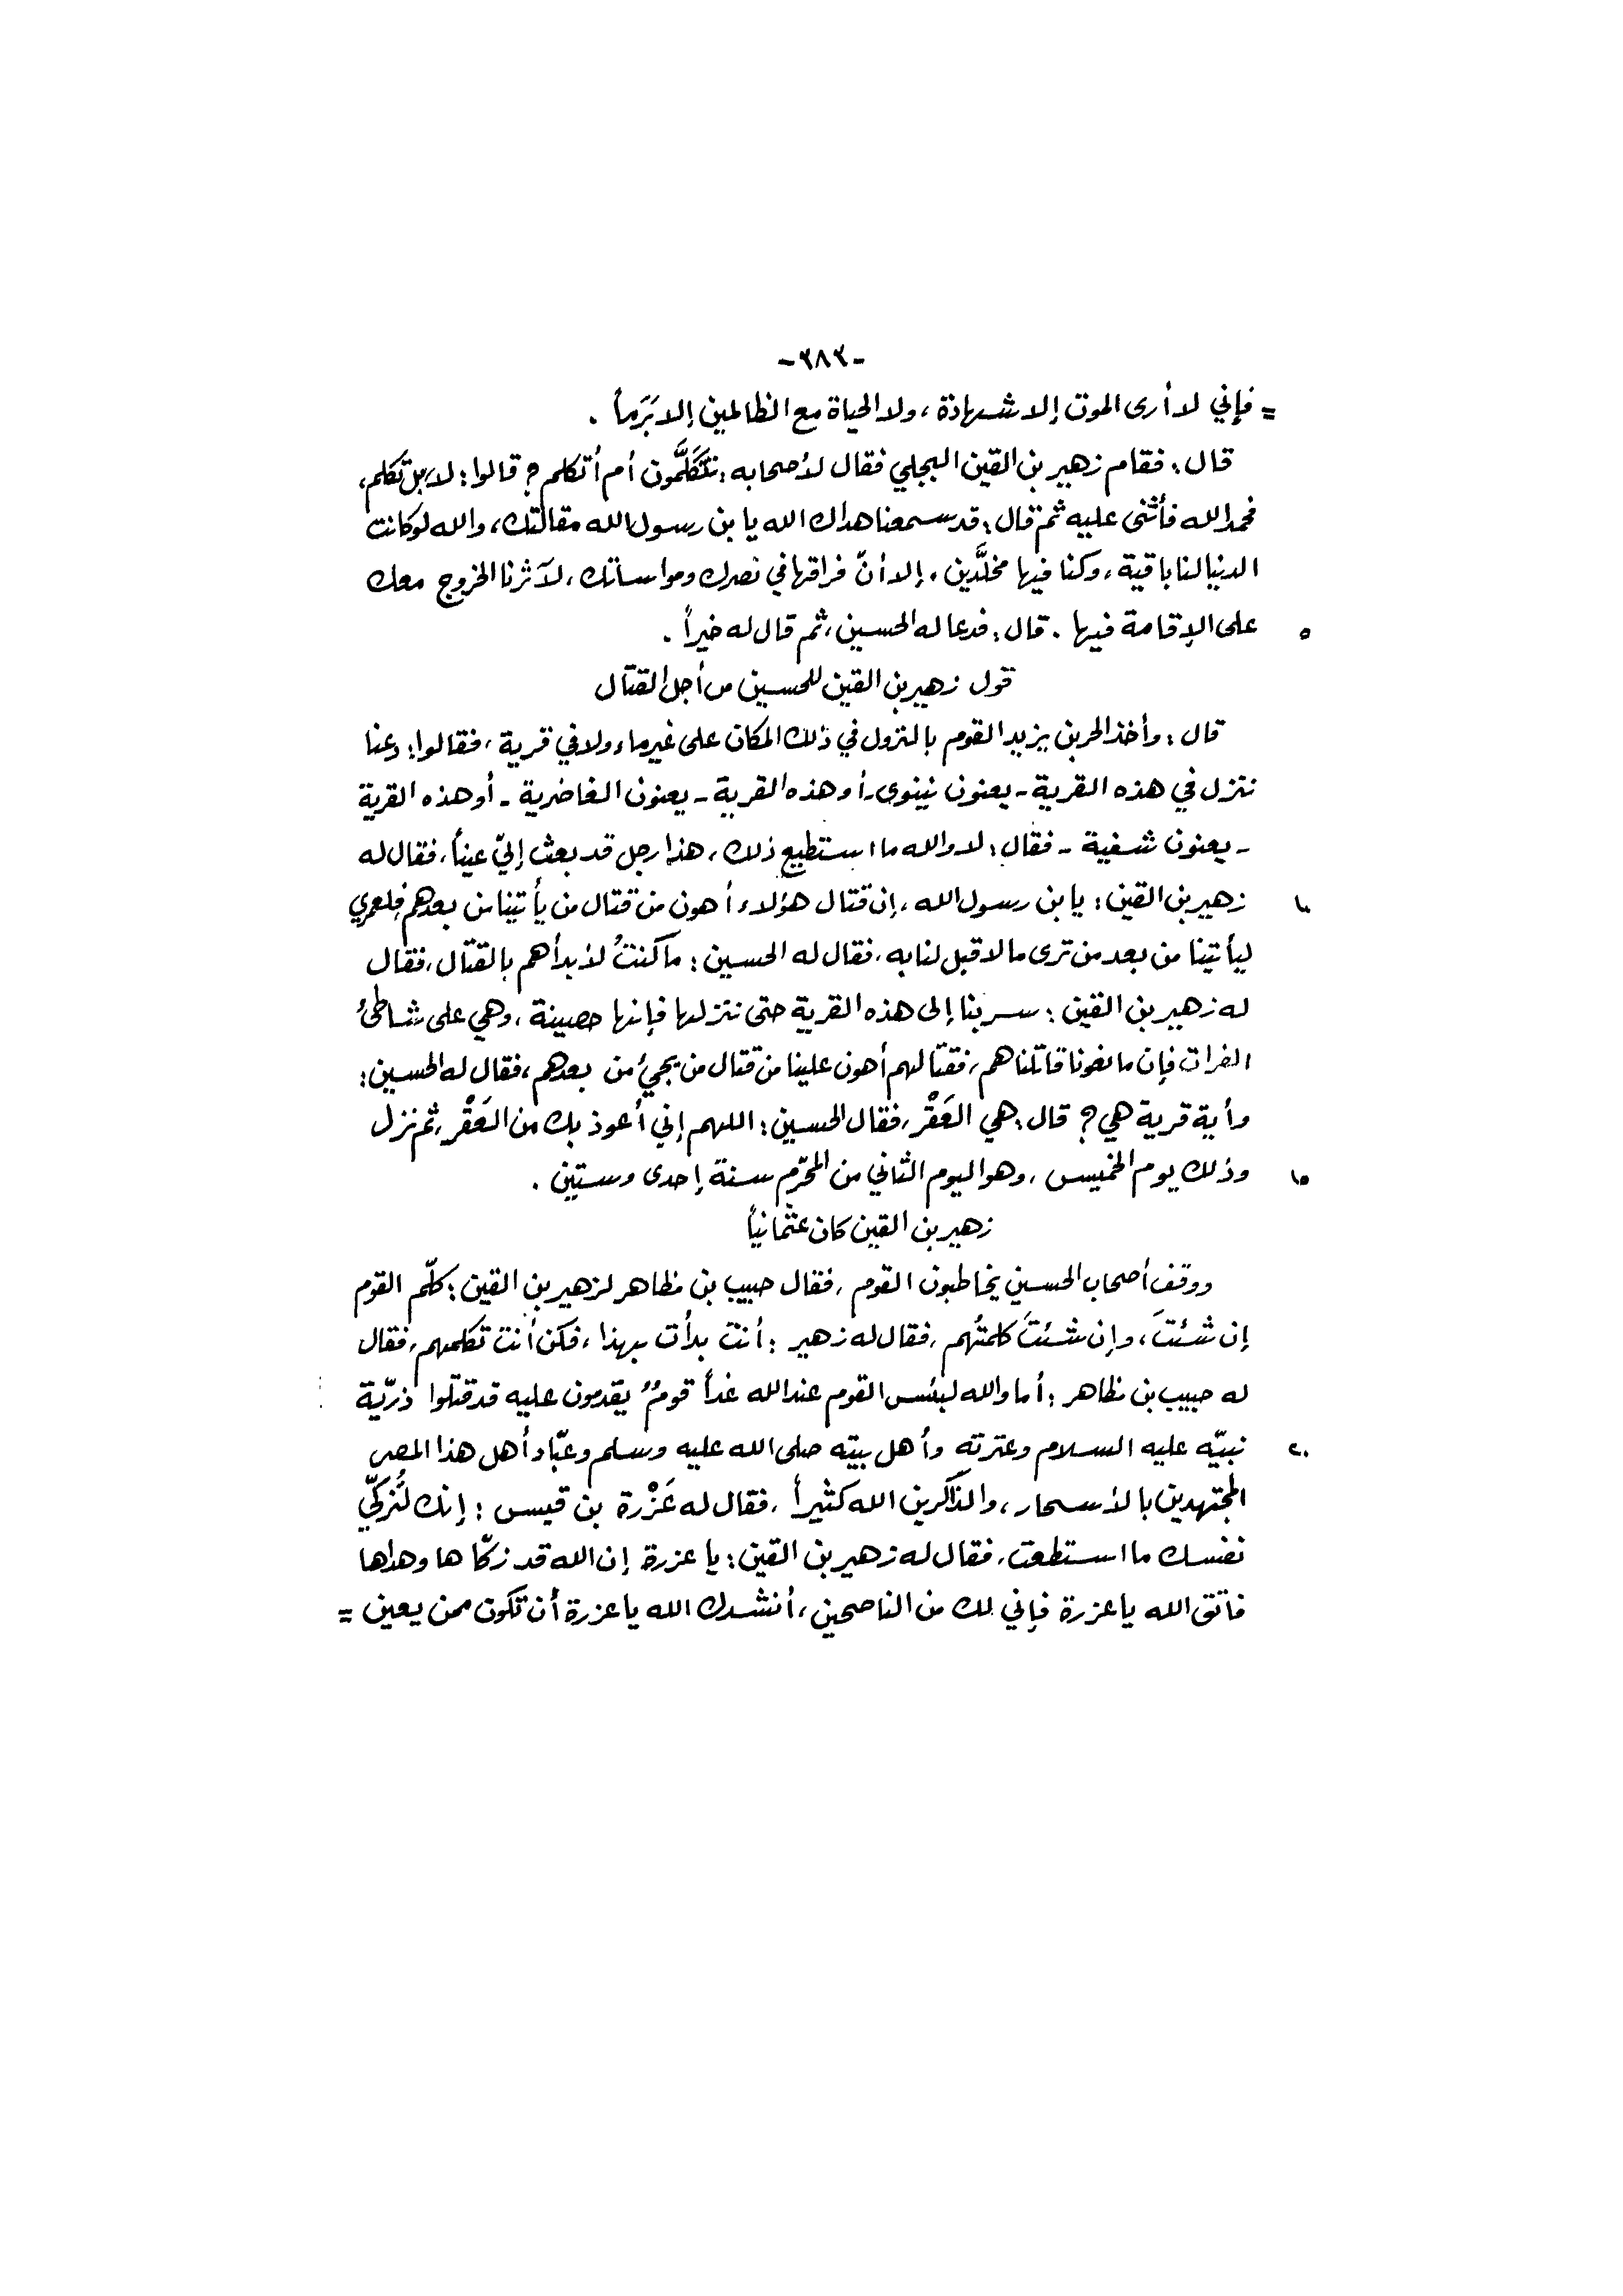 -٣٨٣-
= فإني لا أرى الموت إلا شهادة ، ولا الحياة مع الظالمين إلا بَرَماً .
قال : فقام زهير بن القين البجلي فقال لأصحابه : تتكلَّمون أم أتكلم ؟ قالوا : لا ، بل تكلم ،
فحمد الله فأثنى عليه ثم قال : قد سمعنا هداك الله يا بن رسول الله مقالتك ، والله لو كانت
الدنيا لنا باقية ، وكنا فيها مخلَّدين ، إلا أنّ فراقها في نصرك ومواساتك ، لآثرنا الخروج معك
٥ على الإقامة فيها . قال : فدعا له الحسين ، ثم قال له خيراً .
قول زهير بن القين للحسين من أجل القتال
قال : وأخذ الحر بن يزيد القوم بالنزول في ذلك المكان على غير ماء ولا في قرية ، فقالوا : دعنا
ننزل في هذه القرية - يعنون نينوى - أو هذه القرية - يعنون الغاضرية - أو هذه القرية
- يعنون شفية - فقال : لا والله ما استطيع ذلك ، هذا رجل قد بعث إليّ عيناً ، فقال له
١٠ زهير بن القين : يا بن رسول الله ، إن قتال هؤلاء أهون من قتال من يأتينا من بعدهم فلعمري
ليأتينا من بعد من ترى ما لا قبل لنا به ، فقال له الحسين : ما كنتُ لأبدأهم بالقتال ، فقال
له زهير بن القين : سر بنا إلى هذه القرية حتى ننزلها فإنها حصينة ، وهي على شاطئ
الفرات فإن مانعونا قاتلناهم ، فقتالهم أهون علينا من قتال من يجيئ من بعدهم ، فقال له الحسين :
وأية قرية هي ؟ قال : هي العَقْر ، فقال الحسين : اللهم إني أعوذ بك من العَقْر ، ثم نزل
١٥ وذلك يوم الخميس ، وهو اليوم الثاني من المحرّم سنة إحدى وستين .
زهير بن القين كان عثمانياً
ووقف أصحاب الحسين يخاطبون القوم ، فقال حبيب بن مظاهر لزهير بن القين : كلّم القوم
إن شئتَ ، وإن شئتَ كلمتُهم ، فقال له زهير : أنت بدأت بهذا ، فكن أنت تكلمهم ، فقال
له حبيب بن مظاهر : أما والله لبئس القوم عند الله غداً قومٌ يقدمون عليه قد قتلوا ذرّية
٢٠ نبيّه عليه السلام وعترته وأهل بيته صلى الله عليه وسلم وعبّاد أهل هذا المصر
المجتهدين بالأسحار ، والذّاكرين الله كثيراً ، فقال له عَزْرة بن قيس : إنك لتُزكّي
نفسك ما استطعت ، فقال له زهير بن القين : يا عزرة إن الله قد زكّاها وهداها
فاتق الله يا عزرة فإني لك من الناصحين ، أنشدك الله يا عزرة أن تكون ممن يعين =